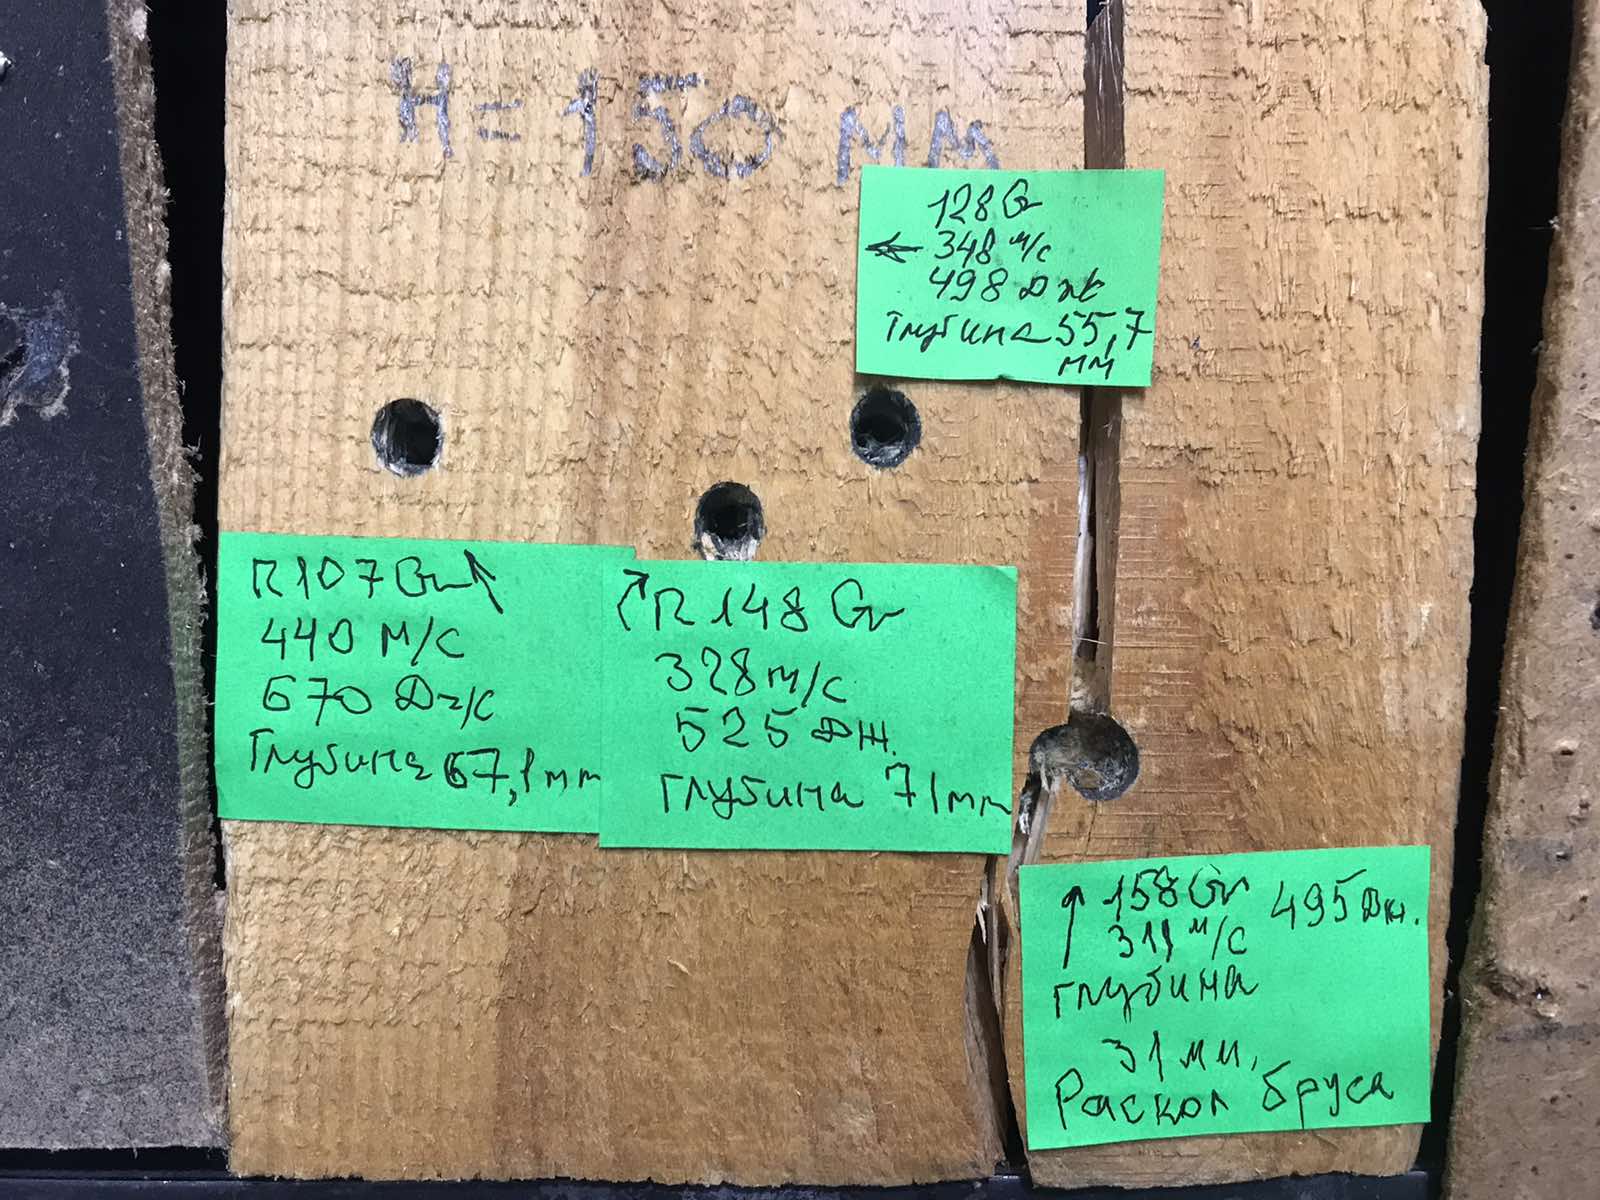 H=150 мм
128Gr
← 348 м/с
498 Дж
Глубина 55,7
мм
П107Gr ↑
440 м/с
670 Дж
Глубина 67,1мм
↗ П 148 Gr
328м/с
525 Дж.
глубина 71мм
↑ 158Gr 495Дж.
311 м/с
глубина
31мм.
Раскол бруса